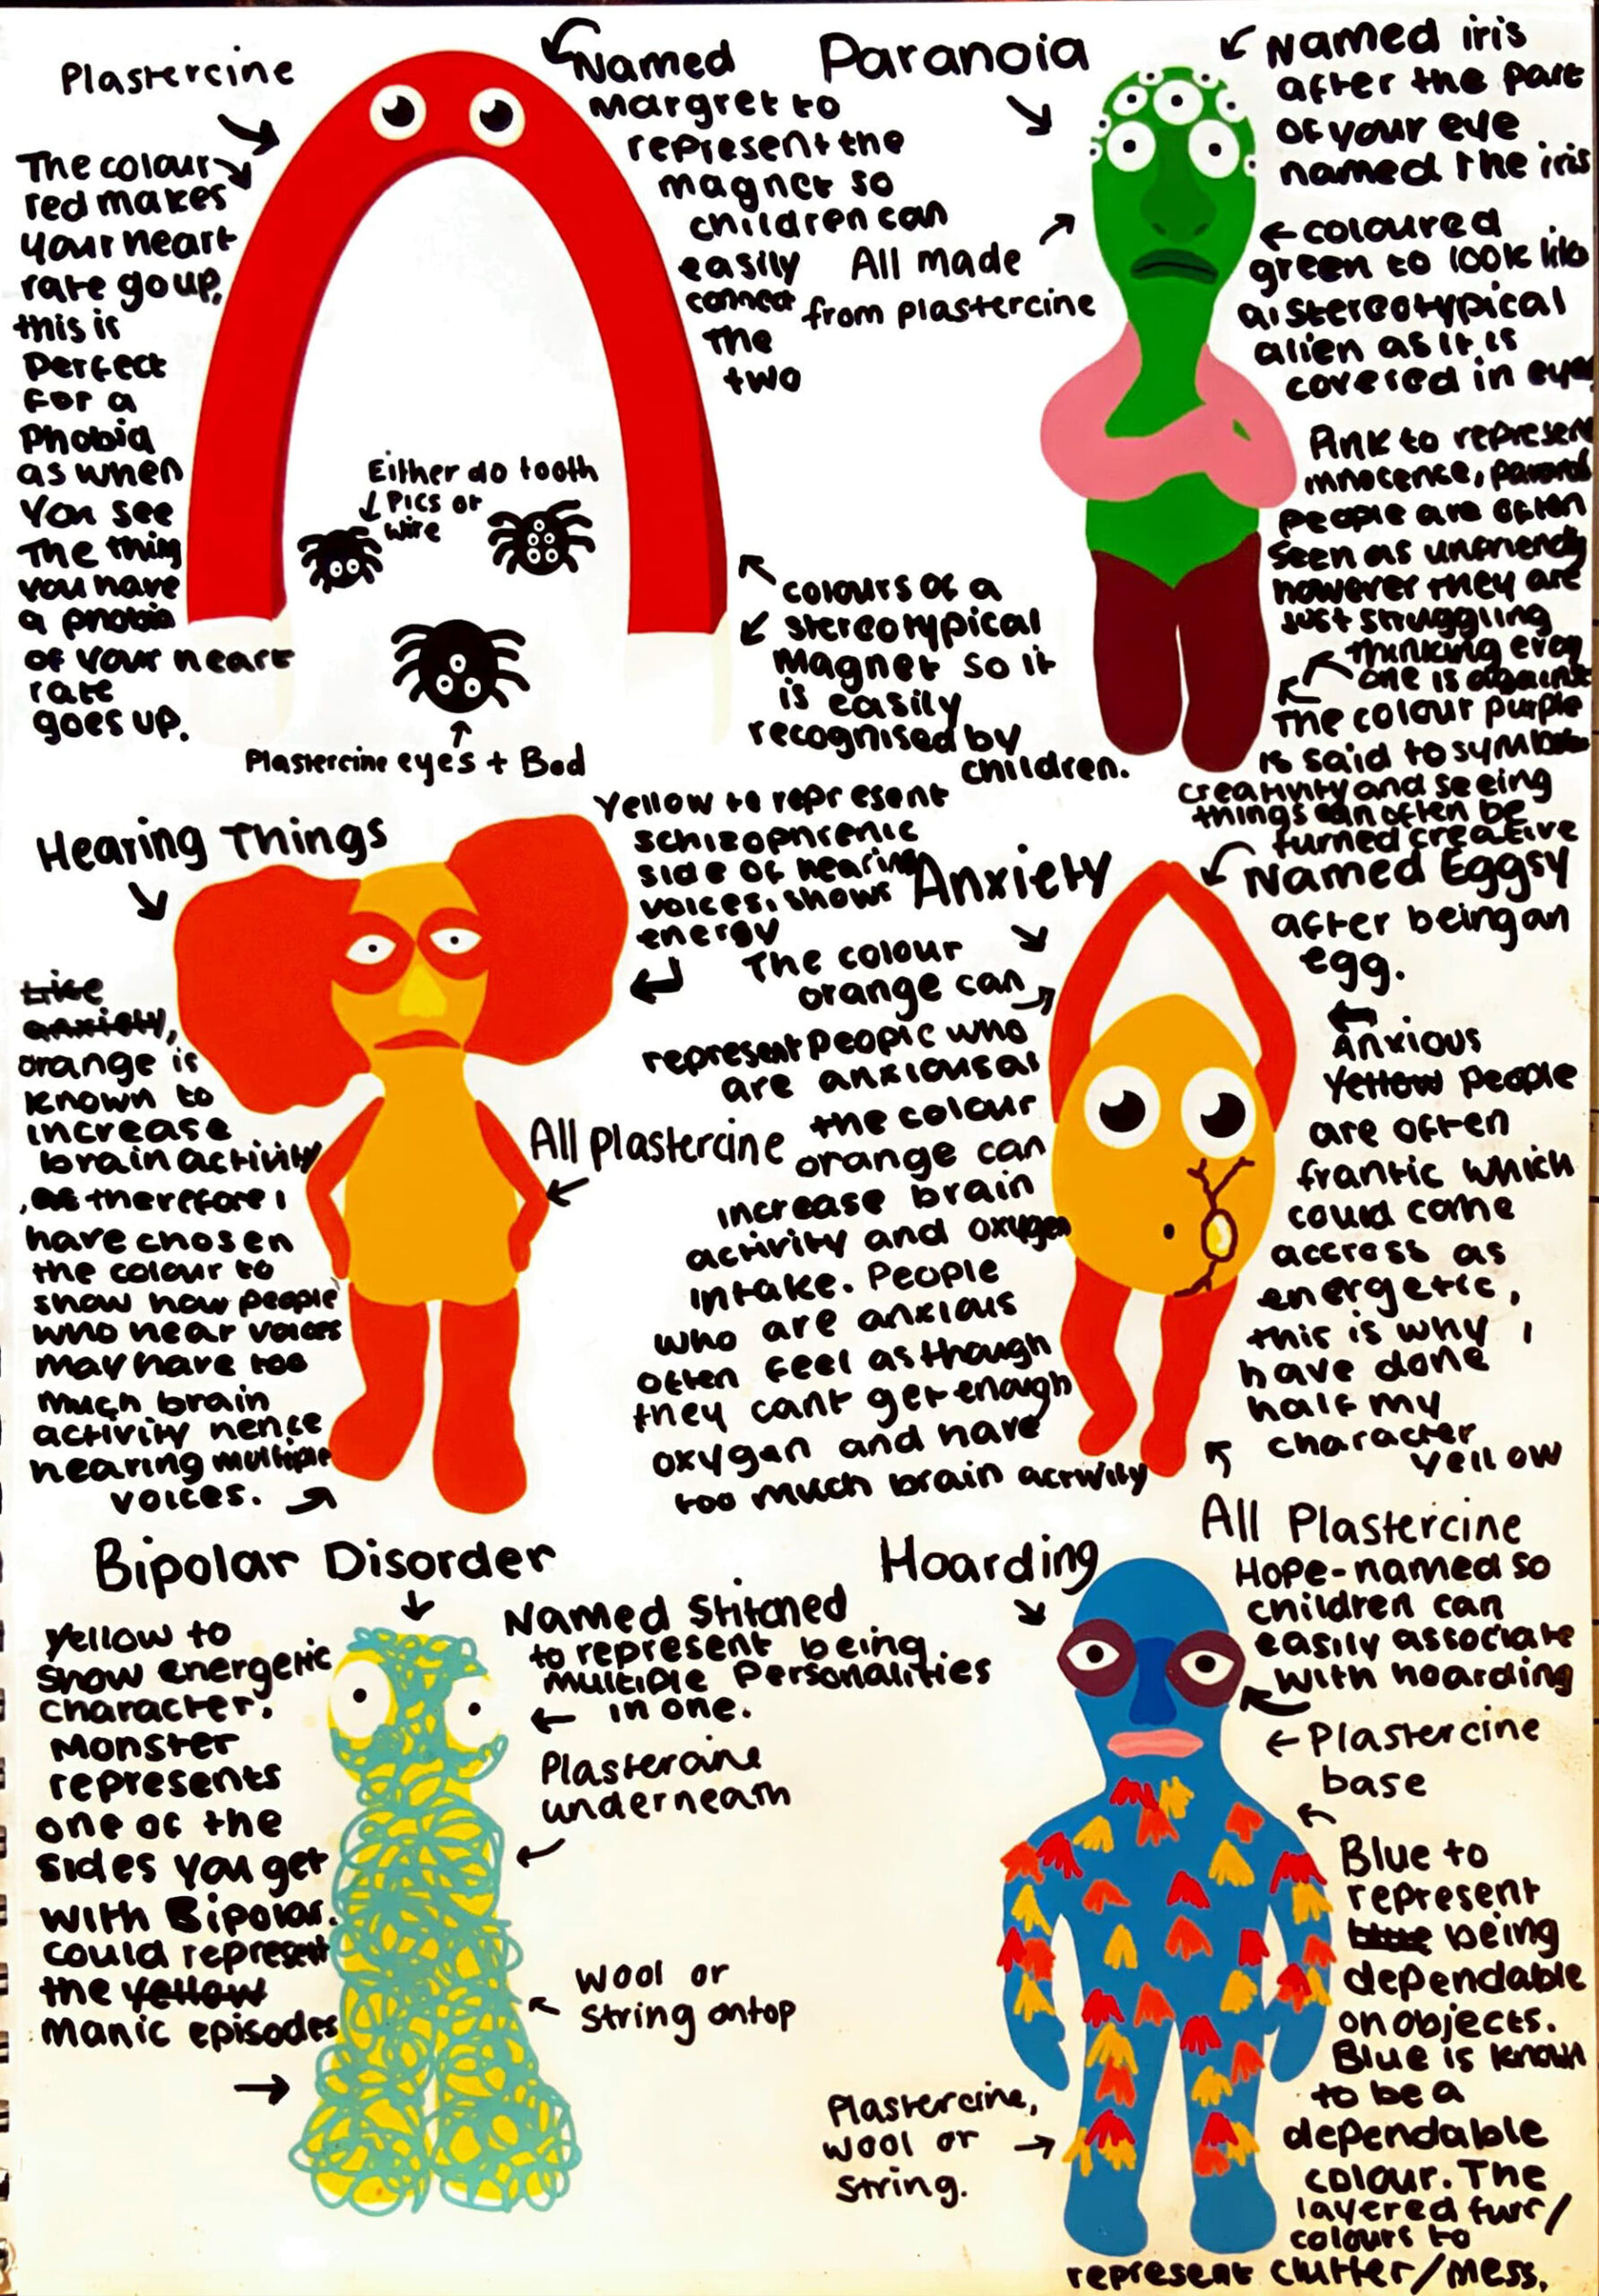 Plastercine
The colour
red makes
your heart
rate go up,
this is
perfect
for a
Phobia
as when
You see
The thing
you have
a phobia
of your heart
rate
goes up.
Named
Margret to
represent the
magnet so
children can
easily
connect
the
two
Either do tooth
Pics or
wire
Plastercine eyes + Bod
colours of a
stereotypical
Magnet so it
is easily
recognised by
children.
Paranoia
All made
from plastercine
Named iris
after the part
of your eye
named the iris
coloured
green to look like
a stereotypical
alien as it is
covered in eyes
Pink to represent
innocence,
people are often
seen as unfriendly
however they are
just struggling
thinking every
one is against
The colour purple
is said to
creativity and seeing
things can often be
turned creative
Hearing Things
Like
anxiety,
orange is
known to
increase
brain activity
, as therefore i
have chosen
the colour to
show how people
who hear voices
may have too
much brain
activity hence
hearing multiple
voices.
Yellow to represent
schizophrenic
side of hearing
voices. shows
energy
All plastercine
Anxiety
The colour
orange can
represent people who
are anxious as
the colour
orange can
increase brain
activity and oxygen
intake. People
who are anxious
often feel as though
they cant get enough
oxygen and have
too much brain activity
Named Eggsy
after being an
egg.
Anxious
Yellow people
are often
frantic which
could come
accross as
energetic,
this is why i
have done
half my
character
yellow
Bipolar Disorder
Yellow to
show energetic
character.
Monster
represents
one of the
sides you get
with Bipolar.
could represent
the yellow
manic episodes
Named Stitched
to represent being
multiple Personalities
in one.
Plastercine
underneath
Wool or
String ontop
Hoarding
All Plastercine
Hope-named so
children can
easily associate
with hoarding
Plastercine
base
Blue to
represent
being
dependable
on objects.
Blue is known
to be a
dependable
colour. The
layered furr/
colours to
represent clutter/mess.
Plastercine,
wool or
string.